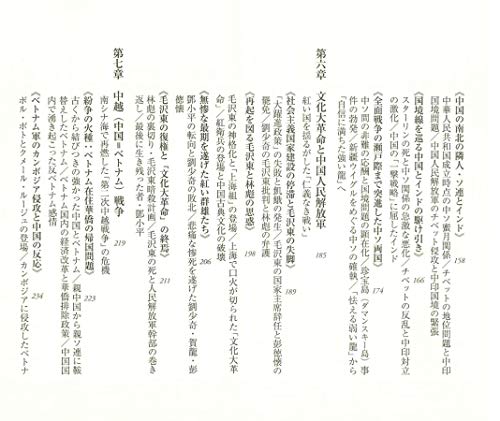 《中国の南北の隣人・ソ連とインド》 158
中華人民共和国成立時点の中ソ蜜月関係／チベットの地位問題と中印
国境問題／中国人民解放軍のチベット侵攻と中印国境の緊張
《国境線を巡る中国とインドの駆け引き》 166
スターリンの死と中ソ関係の急激な悪化／チベットの反乱と中印対立
の激化／中国の「一撃戦略」に屈したインド
《全面戦争の瀬戸際まで突進した中ソ両国》 174
中ソ間の非難の応酬と国境問題の顕在化／珍宝島（ダマンスキー島）事
件の勃発／新疆ウイグルをめぐる中ソの確執／「怯える弱い龍」から
「自信に満ちた強い龍」へ
第六章 文化大革命と中国人民解放軍 185
紅い国を揺るがした「仁義なき戦い」
《社会主義国家建設の停滞と毛沢東の失脚》 189
「大躍進政策」の失敗と飢餓の発生／毛沢東の国家主席辞任と彭徳懐の
罷免／劉少奇の毛沢東批判と林彪の弁護
《再起を図る毛沢東と林彪の思惑》 198
毛沢東の神格化と「上海組」の登場／上海で口火が切られた「文化大革
命」／紅衛兵の登場と中国古典文化の破壊
《無惨な最期を遂げた紅い群雄たち》 206
鄧小平の転向と劉少奇の敗北／悲痛な惨死を遂げた劉少奇・賀龍・彭
徳懐
《毛沢東の復権と「文化大革命」の終焉》 211
林彪の裏切り・毛沢東暗殺計画／毛沢東の死と人民解放軍幹部の巻き
返し／最後に生き残った者・鄧小平
第七章 中越（中国＝ベトナム）戦争 219
南シナ海で再燃した「第二次中越戦争」の危機
《紛争の火種・ベトナム在住華僑の帰国問題》 223
古くから結びつきの強かった中国とベトナム／親中国から親ソ連に鞍
替えしたベトナム／ベトナム国内の経済改革と華僑排除政策／中国国
内で湧き起こった反ベトナム感情
《ベトナム軍のカンボジア侵攻と中国の反応》 234
ポル・ポトとクメール・ルージュの登場／カンボジアに侵攻したベトナ